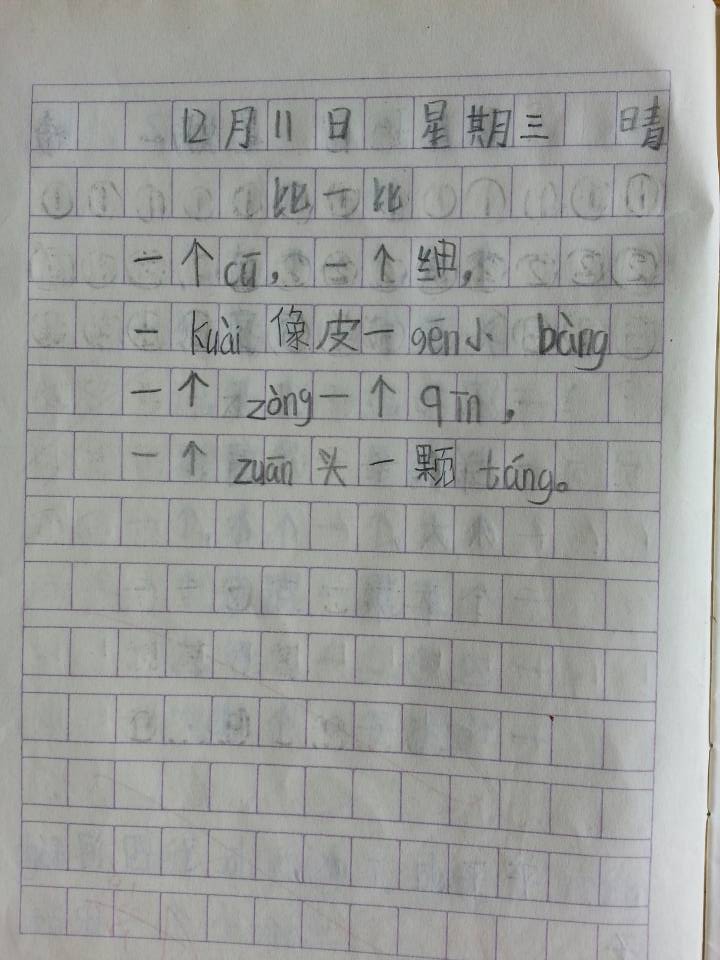 12月11日 星期三 晴
比一比
一个cū,一个细,
一kuài像皮一gēn小bàng
一个zòng一个qīn,
一个zuān头一颗táng。